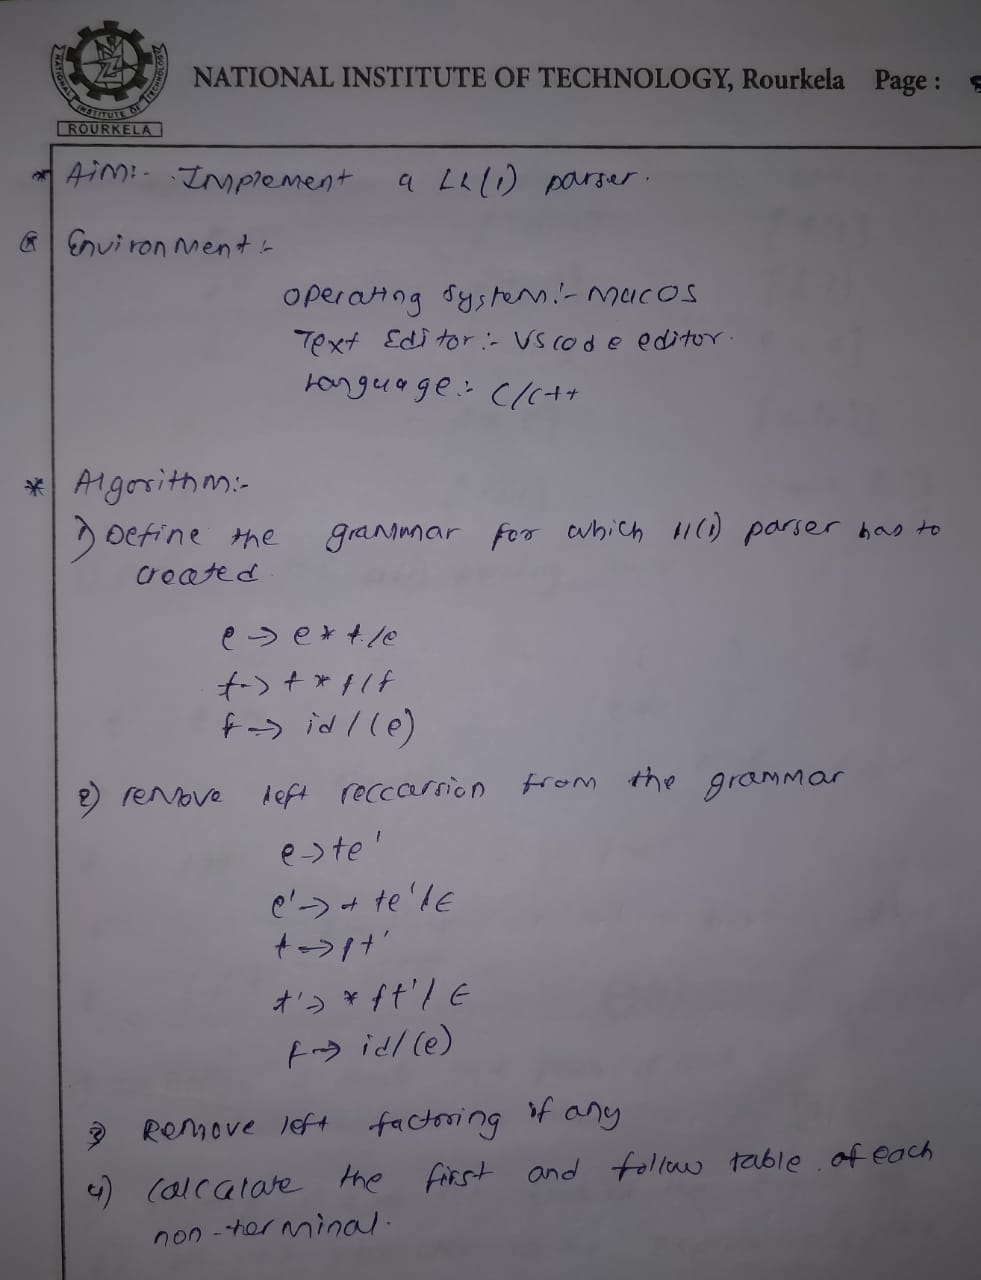 NATIONAL INSTITUTE OF TECHNOLOGY
ROURKELA
NATIONAL INSTITUTE OF TECHNOLOGY, Rourkela Page :
* Aim:- Implement a LL(1) parser.
* Environment:-
Operating System:- MacOS
Text Editor:- VS code editor.
Language:- C/C++
* Algorithm:-
1) Define the grammar for which ll(1) parser has to
created
e → e * t/e
t → t * f/f
f → id/(e)
2) remove left reccursion from the grammar
e → te'
e' → + te'/ε
t → ft'
t' → * ft'/ε
f → id/(e)
3) Remove left factoring if any
4) Calculate the first and follow table of each
non-terminal.